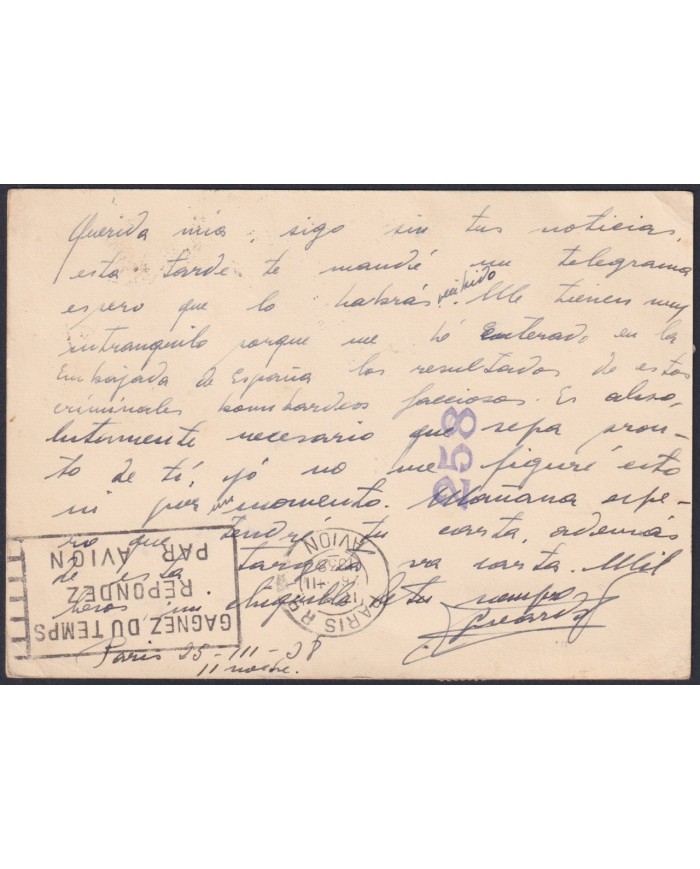 Querida mía, sigo sin tus noticias,
esta tarde te mandé un telegrama
espero que lo habrás recibido. Me tienen muy
intranquilo porque me hé enterado en la
Embajada de España los resultados de estos
criminales bombardeos facciosos. Es abso-
lutamente necesario que sepa pron-
to de tí, yó no me figuré esto
ni por un momento. Mañana espe-
ro que tendré tu carta, además
de esta tarjeta va carta. Mil
besos mi chiquilla de tu
Paris 25-III-38
11 noche.
258
GAGNEZ DU TEMPS
REPONDEZ
PAR AVION
PARIS R.P.
AVION